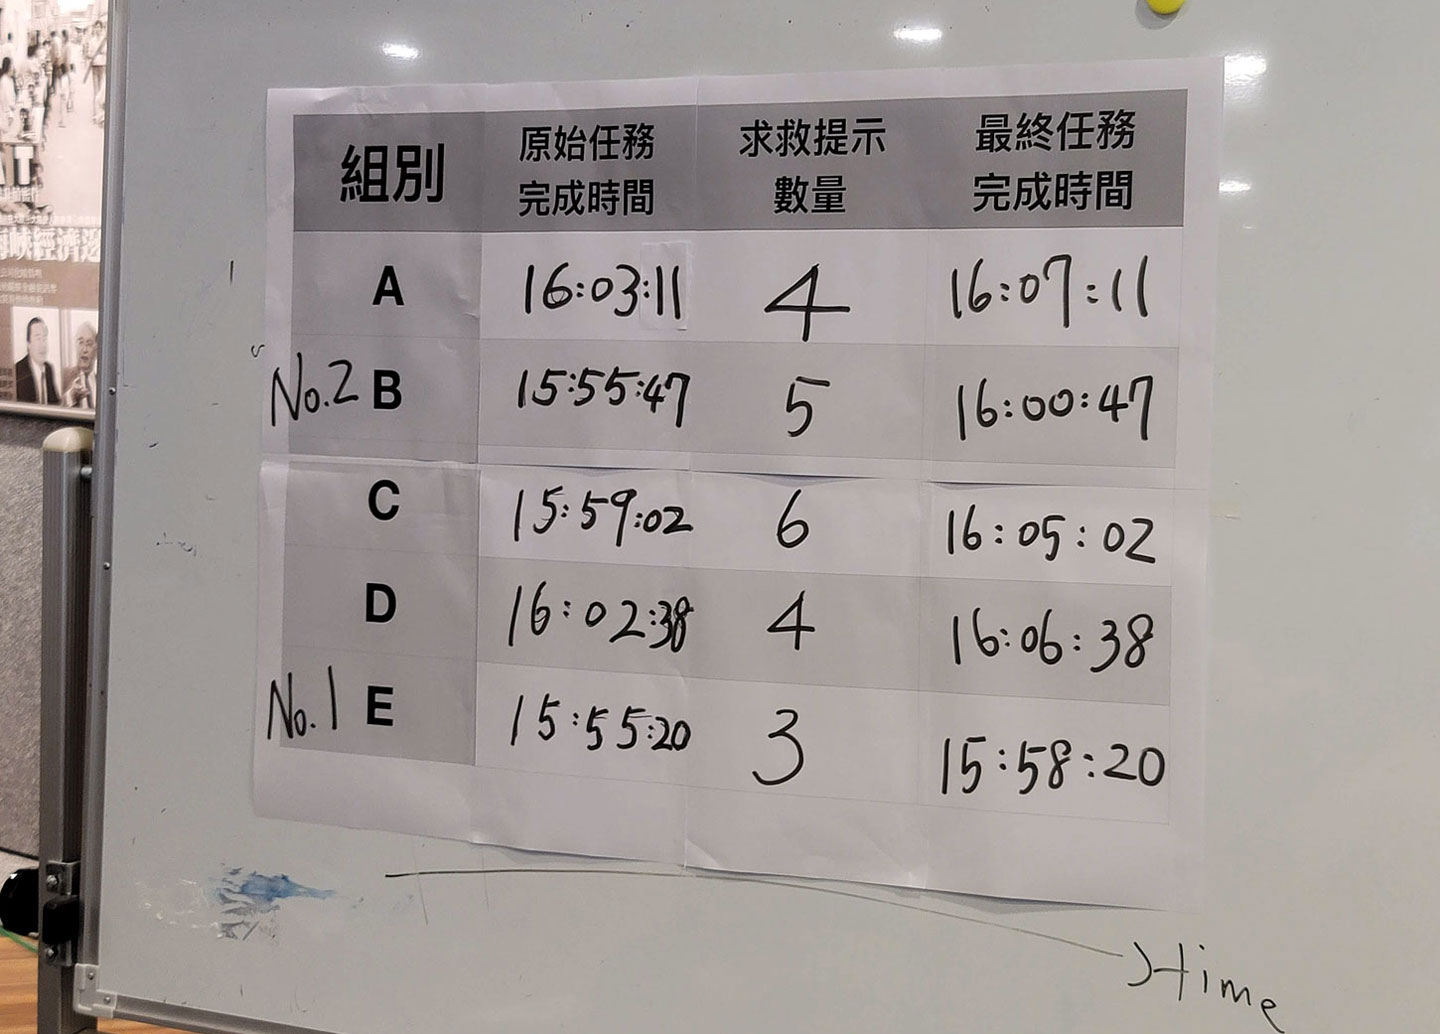 組別 原始任務完成時間 求救提示數量 最終任務完成時間
A 16:03:11 4 16:07:11
No.2 B 15:55:47 5 16:00:47
C 15:59:02 6 16:05:02
D 16:02:38 4 16:06:38
No.1 E 15:55:20 3 15:58:20
time